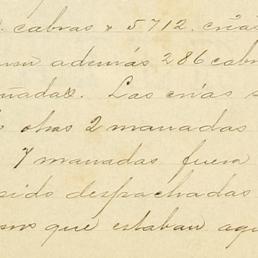 cabras & 5712. crías
además 286 cabr
Las crías s
otras 2 manadas
7 manadas fuera
sido despachadas
que estaban aqu